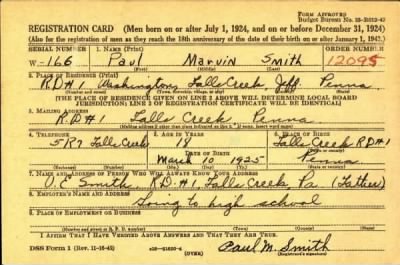 FORM APPROVED
REGISTRATION CARD (Men born on or after July 1, 1924, and on or before December 31, 1924)
(Also for the registration of men as they reach the 18th anniversary of the date of their birth on or after January 1, 1943.)
SERIAL NUMBER 1. NAME (Print) ORDER NUMBER
W-166 Paul Marvin Smith 12095
(First) (Middle) (Last)
2. PLACE OF RESIDENCE (Print)
R.D#1 Washington Falls Creek Jeff. Penna
(Number and street) (Town, township, village, or city) (County) (State)
[THE PLACE OF RESIDENCE GIVEN ON LINE 2 ABOVE WILL DETERMINE LOCAL BOARD
JURISDICTION; LINE 2 OF REGISTRATION CERTIFICATE WILL BE IDENTICAL]
3. MAILING ADDRESS
RD#1 Falls Creek, Penna
4. TELEPHONE 5. AGE IN YEARS 6. PLACE OF BIRTH
5R7 Falls Creek 18 Falls Creek RD#1
DATE OF BIRTH
March 10 1925 Penna
(Mo.) (Day) (Yr.) (State or country)
7. NAME AND ADDRESS OF PERSON WHO WILL ALWAYS KNOW YOUR ADDRESS
Smith, R.D.#1, Falls Creek Pa (Father)
8. EMPLOYER'S NAME AND ADDRESS
Going to high school
9. PLACE OF EMPLOYMENT OR BUSINESS
(Number and street or R. F. D. number) (Town) (County) (State)
I AFFIRM THAT I HAVE VERIFIED ABOVE ANSWERS AND THAT THEY ARE TRUE.
DSS Form 1 (Rev. 11-16-42) Paul M. Smith